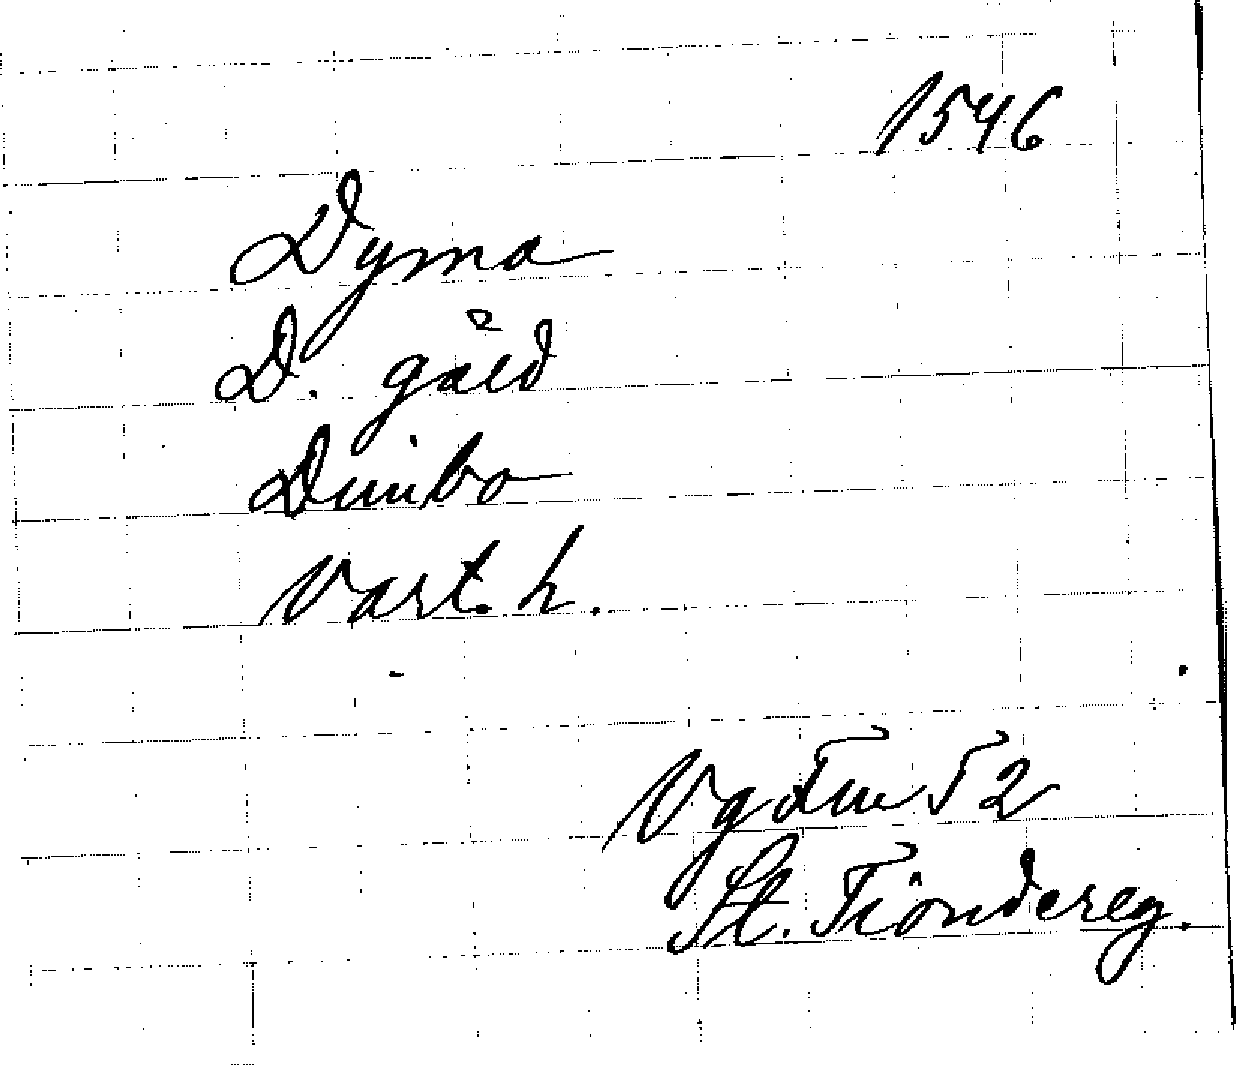 1546
Dyma
D. gäld
Dimbo
Vart. h.
Vg Tm 52
St. Tiondereg.